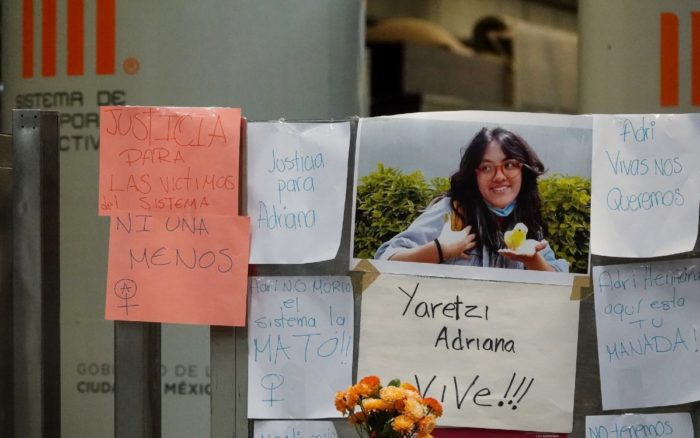 SISTEMA DE
JUSTICIA
PARA
LAS VICTIMAS
del SISTEMA
NI UNA
MENOS
A
Justicia
para
Adriana
Adri NO MURIO
el
sistema la
MATÓ!!
Yaretzi
Adriana
ViVE!!!
Adri
Vivas nos
Queremos
Adri Hermana
aquí esta
TU
MANADA!
No tenemos
GOBIERNO DE LA
CIUDAD DE MÉXICO